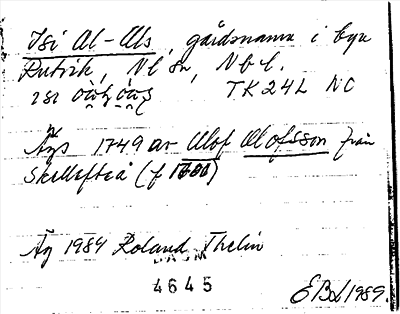 Isi Al-Als, gårdsnamn i byn
Rutvik, Nl sn, Nbl.
TK 24L NO
Ägs 1749 av Olof Olofsson från
Skellefteå (f 1686)
Äg 1984 Roland Thelin
4645
EBd/1989.